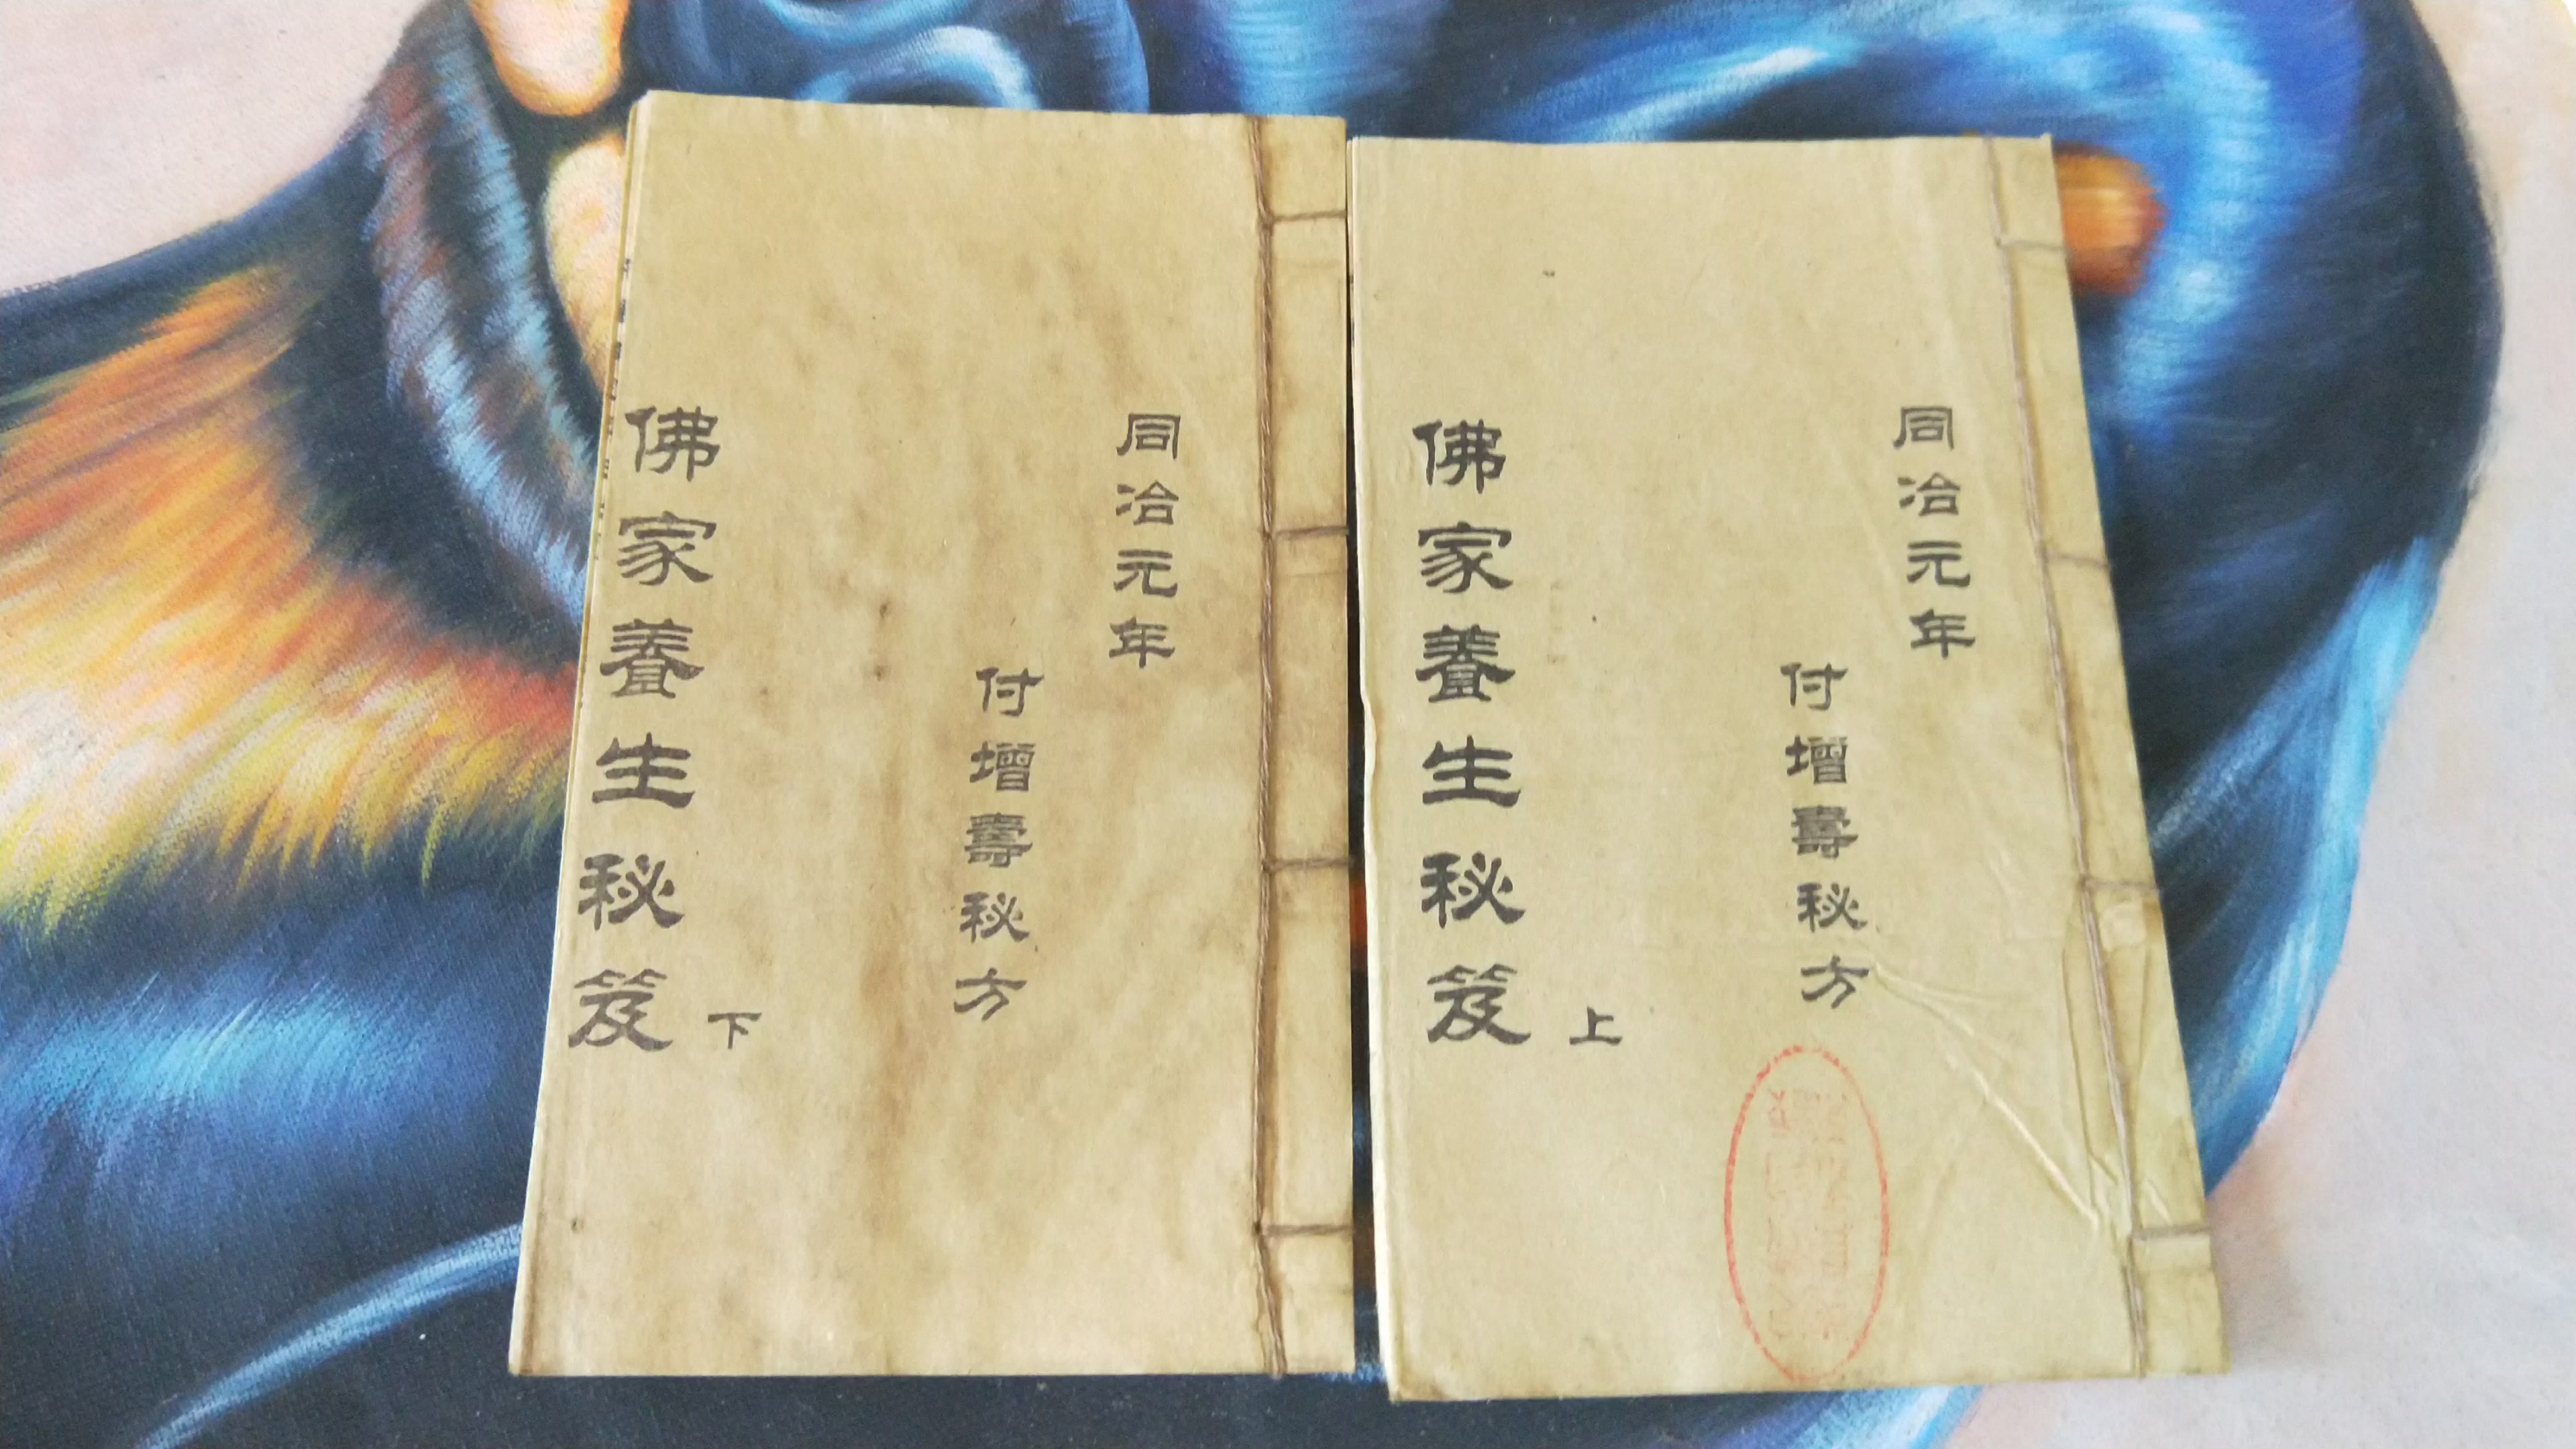 同冶元年
付增壽秘方
佛家養生秘笈
上
同冶元年
付增壽秘方
佛家養生秘笈
下